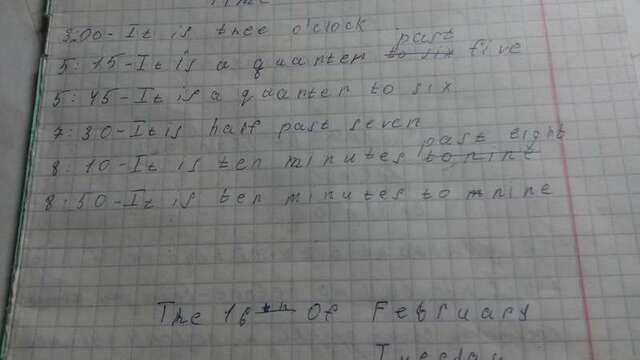 Time
3:00-It is thee o'clock
5:15-It is a quarter past to six five
5:45-It is a quarter to six
7:30-It is half past seven
8:10-It is ten minutes past eight to nine
8:50-It is ten minutes to nine
The 16th Of February
Tuesday